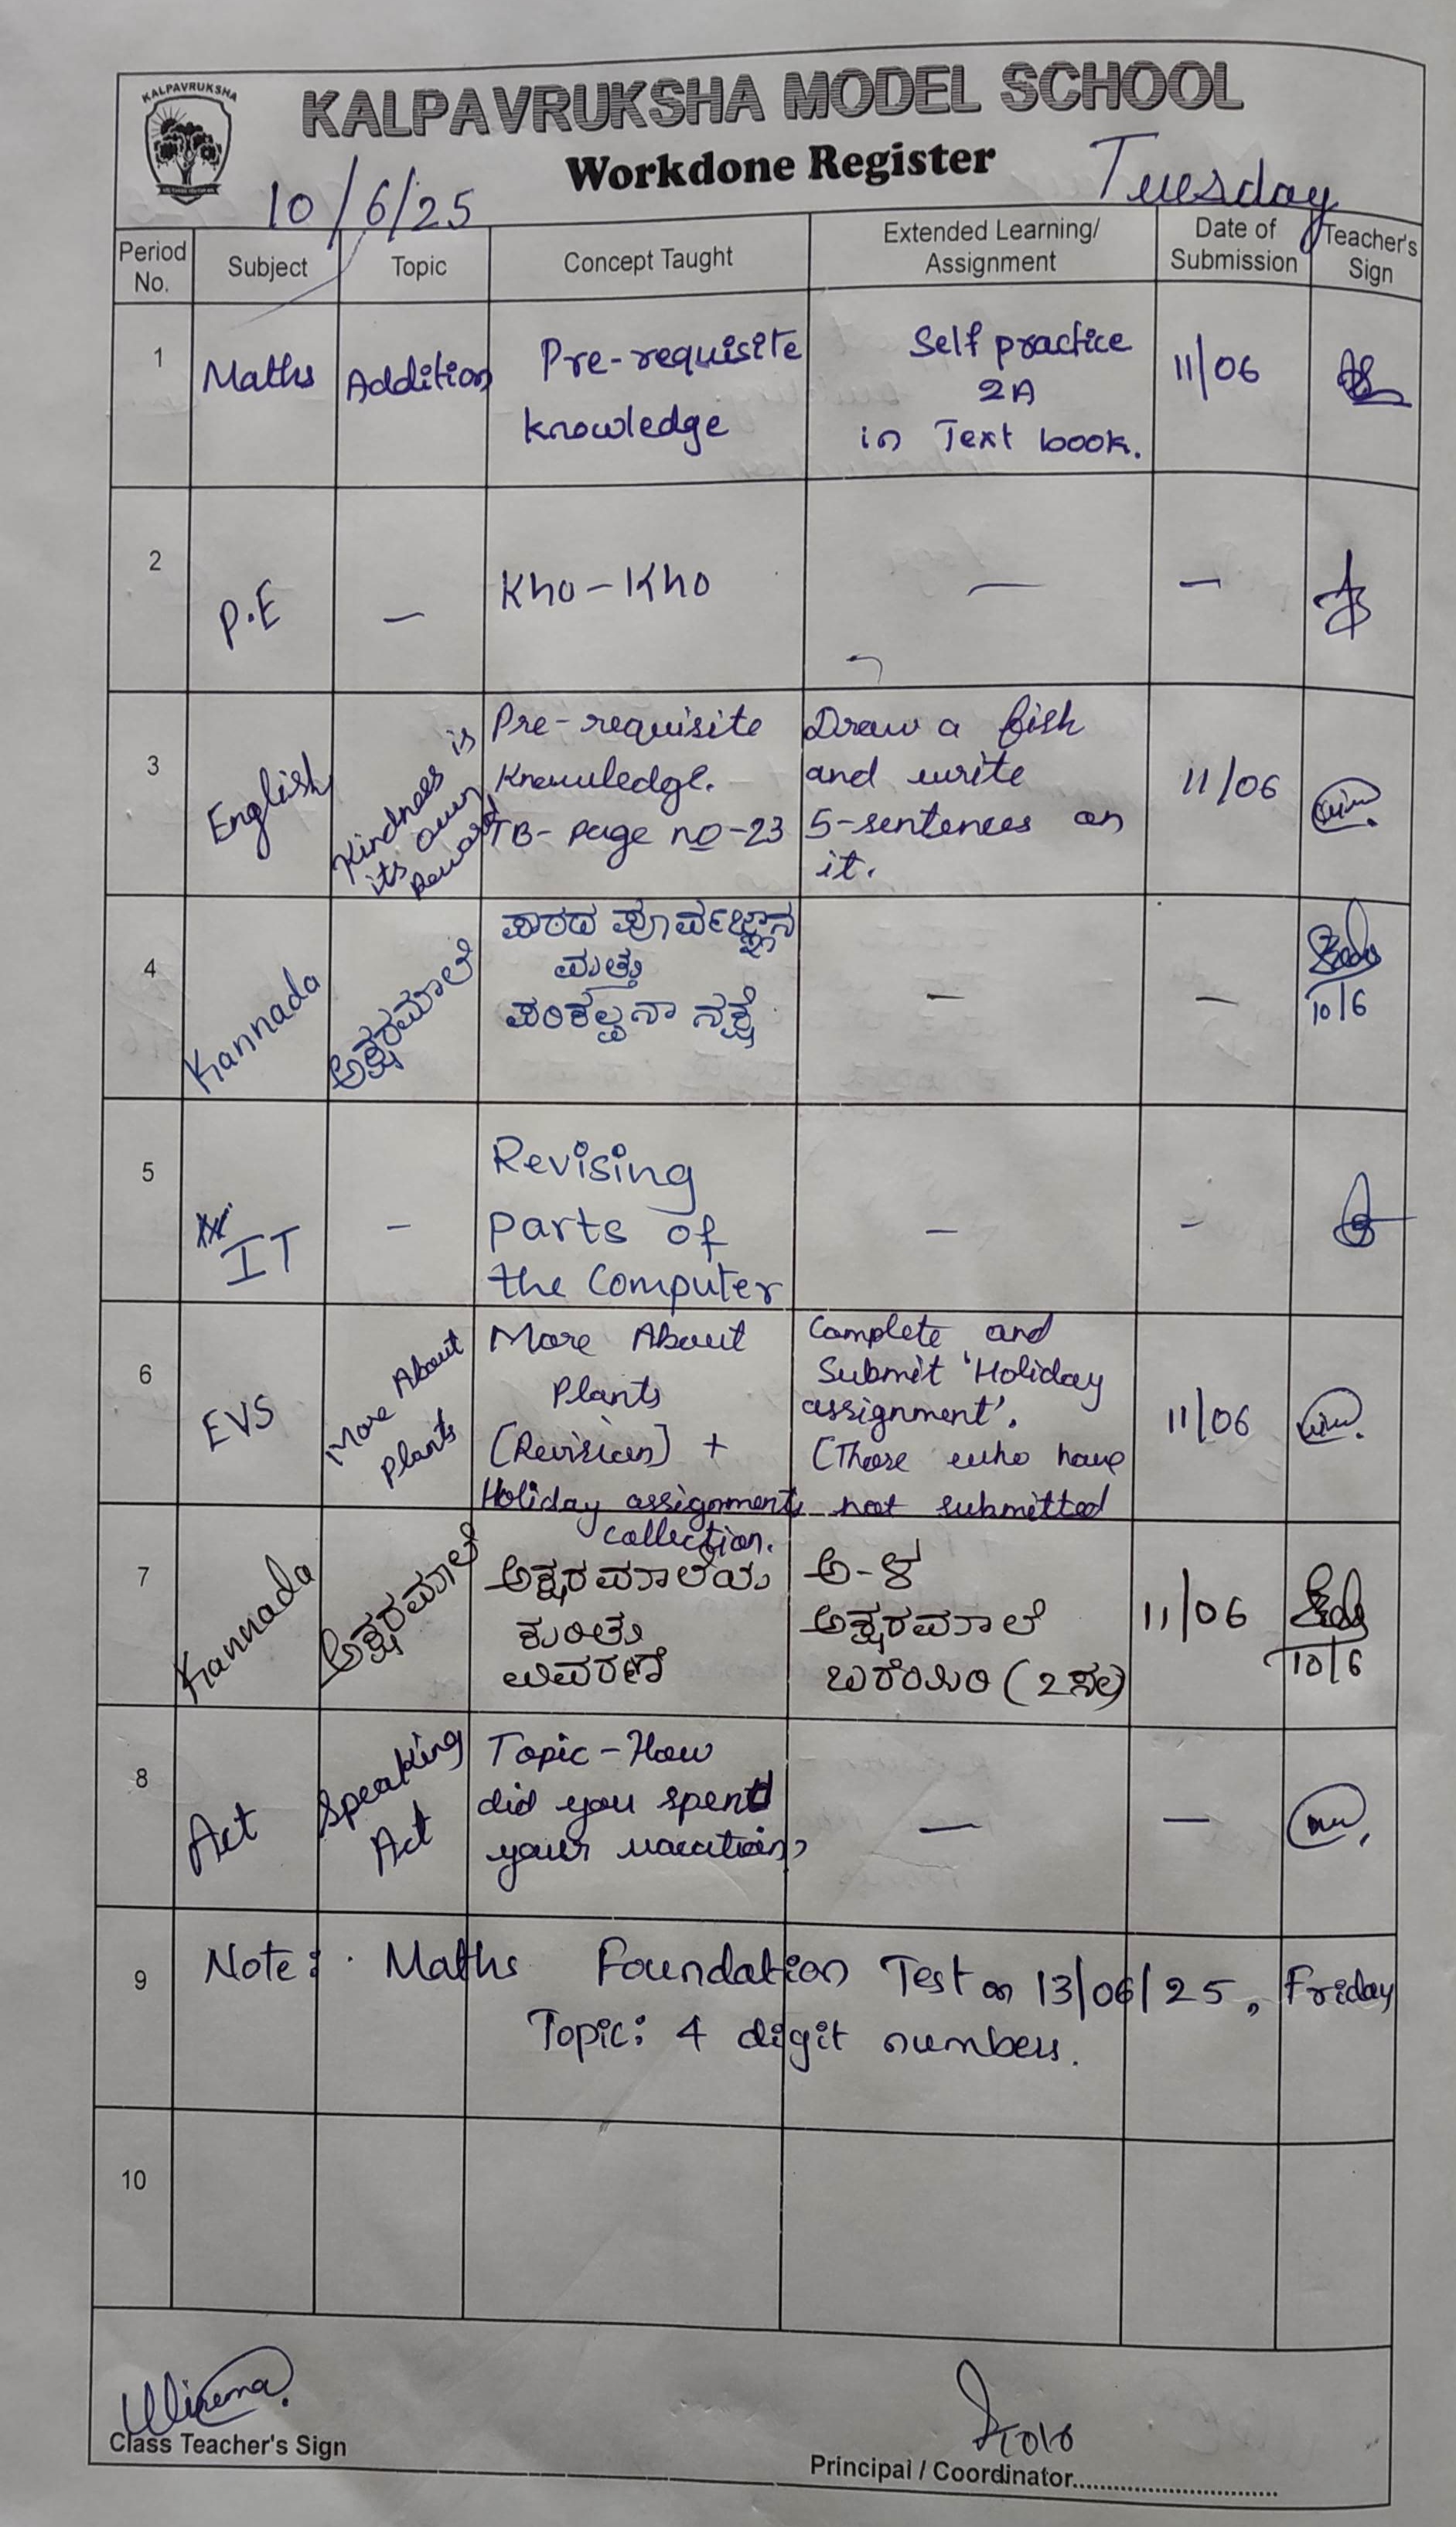 KALPAVRUKSHA
KALPAVRUKSHA MODEL SCHOOL
Workdone Register
10/6/25
Tuesday
Period No.
Subject
Topic
Concept Taught
Extended Learning/ Assignment
Date of Submission
Teacher's Sign
1
Maths
Addition
Pre-requisite
knowledge
Self practice
2A
in Text book.
11/06
2
P.E
—
Kho-Kho
—
—
3
English
Kindness is
its own
reward
Pre-requisite
Knowledge.
TB- page no-23
Draw a fish
and write
5-sentences on
it.
11/06
4
Kannada
ಅಕ್ಷರಮಾಲೆ
ಪಾಠದ ಪೂರ್ವಜ್ಞಾನ
ಮತ್ತು
ಪರಿಕಲ್ಪನಾ ನಕ್ಷೆ
—
—
10/6
5
IT
—
Revising
parts of
the Computer
—
—
6
EVS
More About
Plants
More About
Plants
(Revision) +
Holiday assignment
collection.
Complete and
Submit 'Holiday
assignment'.
(Those who have
not submitted
11/06
7
Kannada
ಅಕ್ಷರಮಾಲೆ
ಅಕ್ಷರಮಾಲೆಯ
ಕುರಿತು
ವಿವರಣೆ
ಅ-ಳ
ಅಕ್ಷರಮಾಲೆ
ಬರೆಯಿರಿ (2 ಸಲ)
11/06
10/6
8
Act
Speaking
Act
Topic - How
did you spend
your vacation
—
—
9
Note: Maths Foundation Test on 13/06/25, Friday
Topic: 4 digit numbers.
10
Class Teacher's Sign
Principal / Coordinator